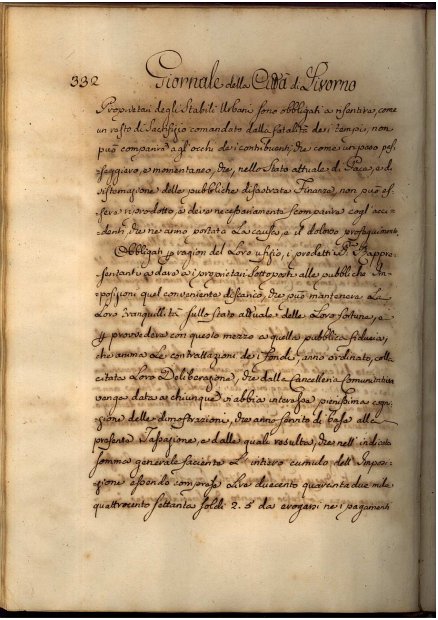 332 Giornale della Città di Livorno
Proprietari degli Stabili Urbani sono obbligati a risentire, come
un resto di Sacrifizio comandato dalla fatalità dei tempi, non
può comparire agli occhi dei contribuenti, che come un peso pas-
seggiero, e momentaneo, che, nello Stato attuale di Pace, e di
sistemazione delle pubbliche disastrate Finanze, non può es-
sere riprodotto, e deve necessariamente scomparire cogl'acci-
denti che ne anno portata la causa, e il doloroso proseguimento.
Obbligati p ragion del Loro ufizio, i predetti SS. Rappre-
sentanti a dare a i proprietari sottoposti alle pubbliche Im-
posizioni quel conveniente discarico, che può mantenere La
Loro tranquillità sullo stato attuale delle Loro fortune, e
p provvedere con questo mezzo a quella pubblica fiducia,
che anima Le contrattazioni dei fondi, anno ordinato, colla
citata Loro Deliberazione, che dalla Cancelleria Comunitativa
venga data a chiunque vi abbia interesse pienissima cogni-
zione delle dimostrazioni, che anno servito di base alla
presente Tassazione, e dalle quali resulta, che nell'indicata
somma generale faciente L'intiero cumulo dell'Impo-
zione essendo comprese Lire duecento quaranta due mila
quattrocento settanta soldi 2. 5 da erogarsi ne i pagamenti